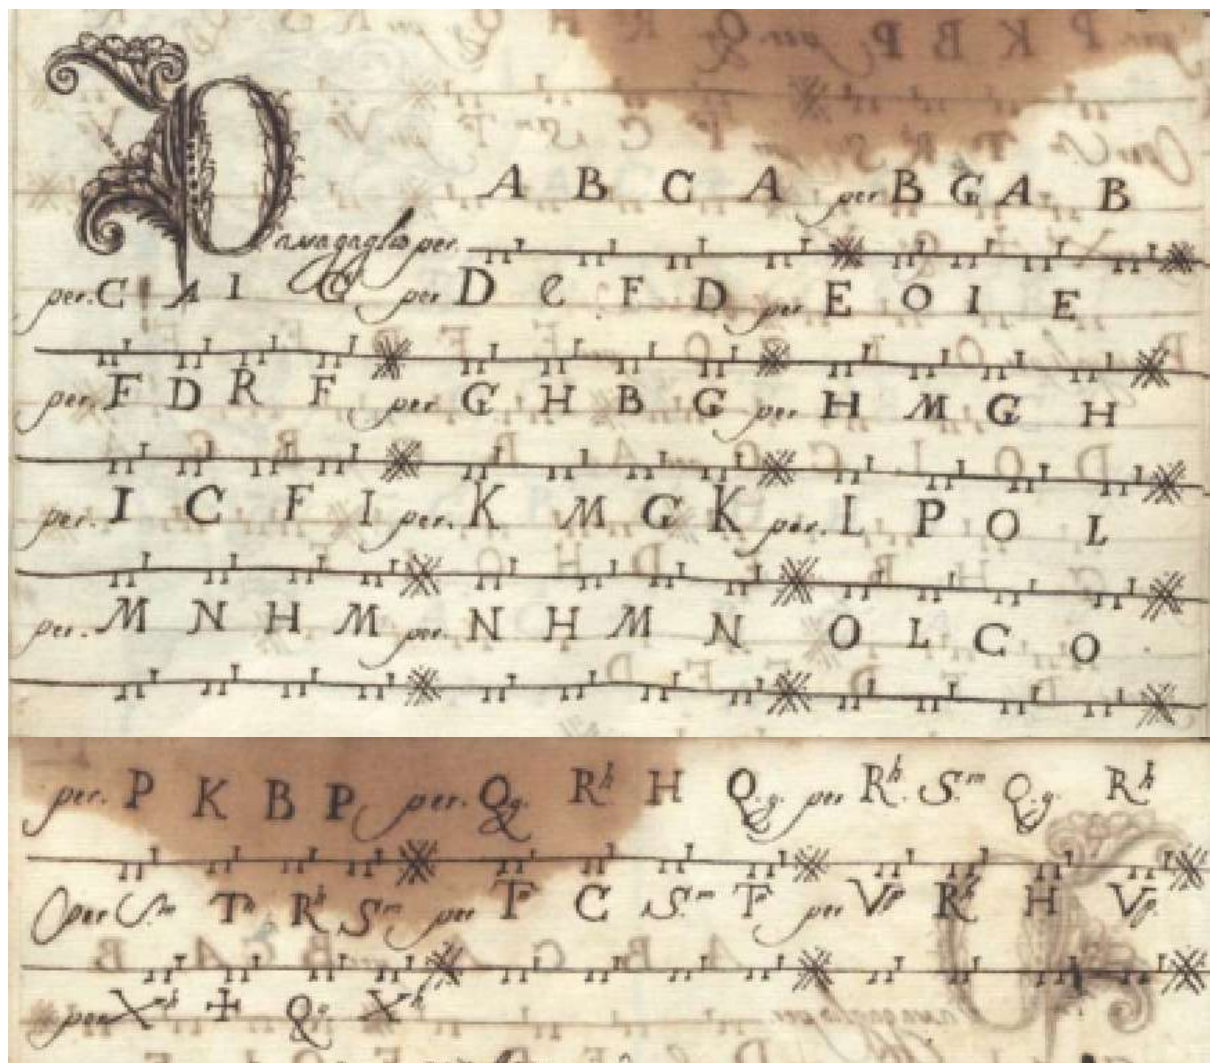 A B C A per B G A B
Passagaglio per.
per. C A I G per D C F D per E O I E
per. F D R F per G H B G per H M G H
per. I C F I per. K M G K per. L P O L
per. M N H M per. N H M N O L C O
per. P K B P per. Qg. Rh H Q.g. per Rh. S.m Q.g. Rh
per Sm Th Rh Sm per Tp C S.m Tp per Vp Rh H Vp.
per Xh + Qg. Xh